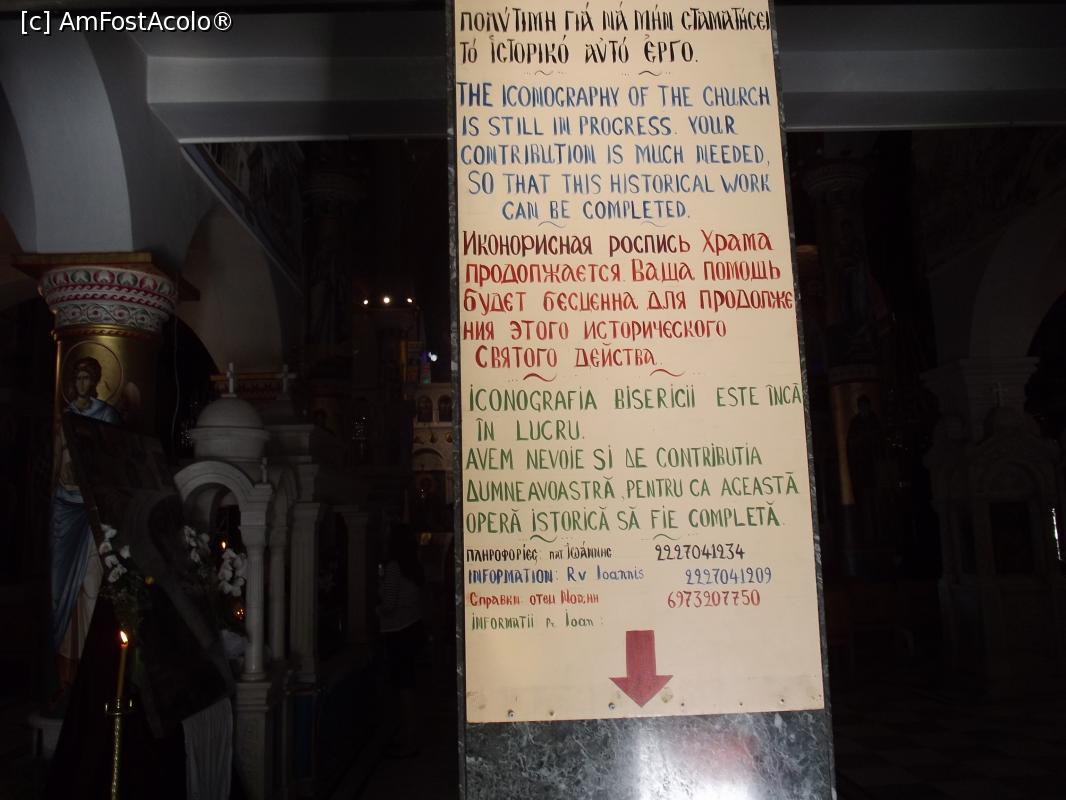 [c] AmFostAcolo®
ΠΟΛΎΤΙΜΗ ΓΙΆ ΝΆ ΜΉΝ ΣΤΑΜΑΤΉΣΕΙ
ΤΌ ἹΣΤΟΡΙΚΌ ΑΥ̓ΤΌ ἜΡΓΟ.
THE ICONOGRAPHY OF THE CHURCH
IS STILL IN PROGRESS. YOUR
CONTRIBUTION IS MUCH NEEDED,
SO THAT THIS HISTORICAL WORK
CAN BE COMPLETED.
Иконорисная роспись Храма
продолжается. Ваша помощь
будет бесценна для продолже
ния этого исторического
святого действа..
ICONOGRAFIA BISERICII ESTE ÎNCĂ
ÎN LUCRU.
AVEM NEVOIE SI DE CONTRIBUTIA
DUMNEAVOASTRĂ, PENTRU CA ACEASTĂ
OPERĂ ISTORICĂ SĂ FIE COMPLETĂ.
ΠΛΗΡΟΦΟΡΊΕΣ: πατ ΙΩΆΝΝΗΣ 2227041234
INFORMATION: Rv Ioannis 2227041209
Справки отец 6973207750
INFORMATII Pr. Ioan: